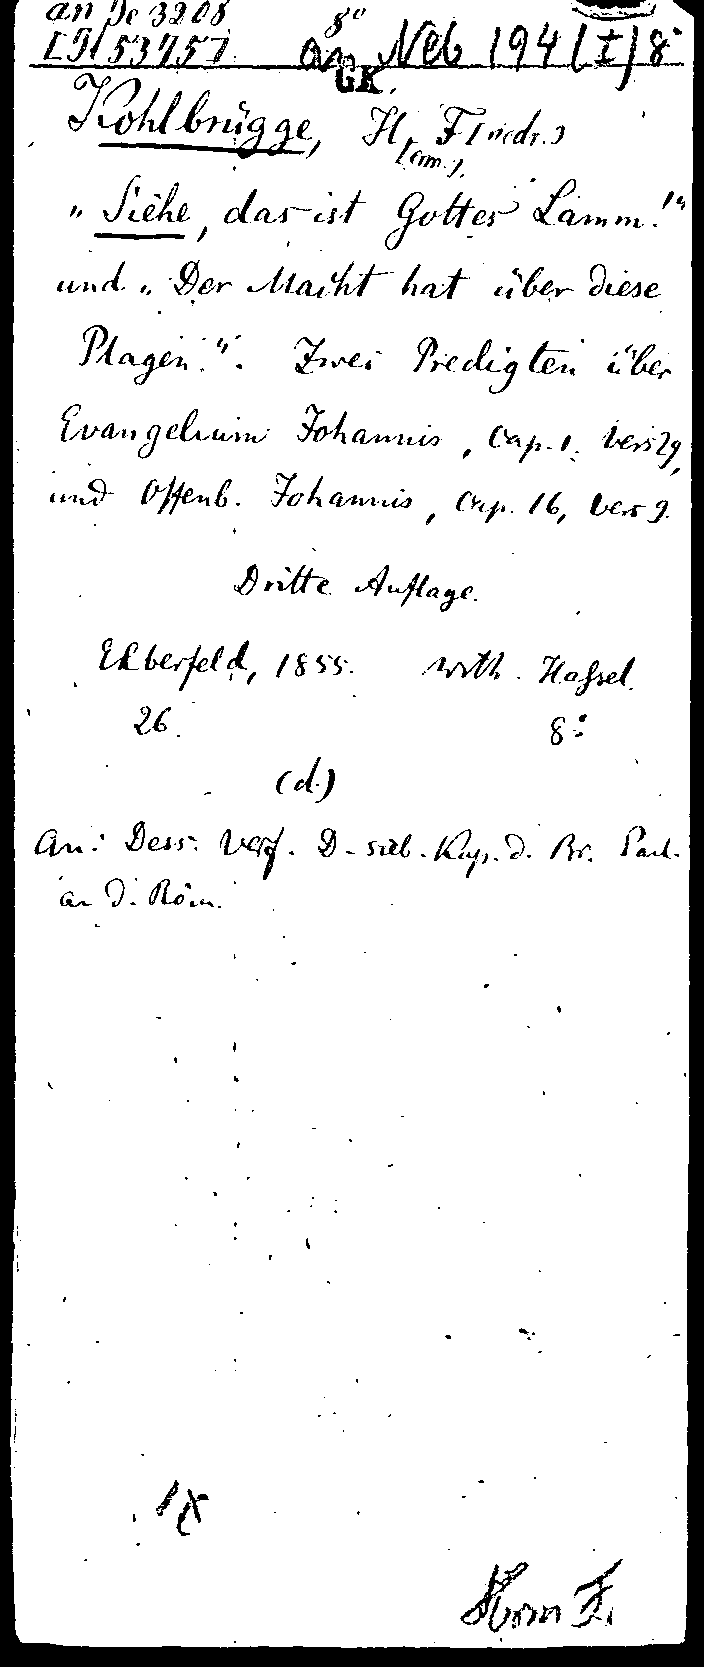 an De 3208 8°
[H 53757 an Neb 194 (I) 8°
GK.
Kohlbrügge, H. F[riedr.]
[erm.],
„Siehe, das ist Gottes Lamm!“
und „Der Macht hat über diese
Plagen.“. Zwei Predigten über
Evangelium Johannis, Cap. 1, Vers 29,
und Offenb. Johannis, Cap. 16, Vers 9.
Dritte Auflage.
Elberfeld, 1855. Hassel.
26. 8°
(d.)
An: Dess. Verf. D. sieb. Kap. d. Br. Pauli
an d. Röm.